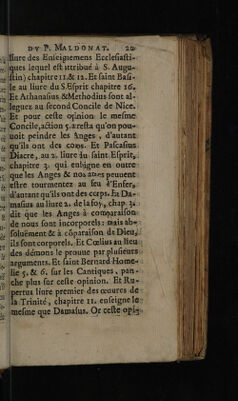 DV P. MALDONAT. 20
liure des Enseignemens Ecclesiasti-
ques lequel est attribué à S. Augu-
stin) chapitre 11. & 12. Et saint Basi-
le au liure du S. Esprit chapitre 16.
Et Athanasius & Methodius sont al-
leguez au second Concile de Nice.
Et pour ceste opinion le mesme
Concile, action 5. aresta qu'on pou-
uoit peindre les Anges, d'autant
qu'ils ont des corps. Et Pascasius
Diacre, au 2. liure du saint Esprit,
chapitre 3. qui enseigne en outre
que les Anges & nos ames peuuent
estre tourmentez au feu d'Enfer,
d'autant qu'ils ont des corps. Et Da-
masius au liure 2. de la foy, chap. 3.
dit que les Anges à comparaison
de nous sont incorporels: mais ab-
soluëment & à cõparaison de Dieu,
ils sont corporels. Et Cœlius au lieu
des démons le prouue par plusieurs
arguments. Et saint Bernard Home-
lie 5. & 6. sur les Cantiques, pan-
che plus sur ceste opinion. Et Ru-
pertus liure premier des œuures de
la Trinité, chapitre 11. enseigne le
mesme que Damasus. Or ceste opi-